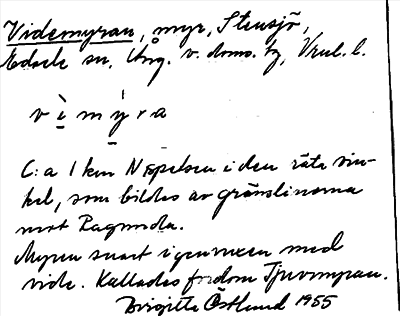 Videmyran, myr, Stensjö,
Edsele sn, Ång. v. doms. tg, Vnul. l.
v ì m ý r a
C:a 1 km N Espelsen i den räta vin-
kel, som bildas av gränslinorna
mot Ragunda.
Myren snart igenvuxen med
vide. Kallades fordom Tjuvmyran.
Birgitta Östlund 1955